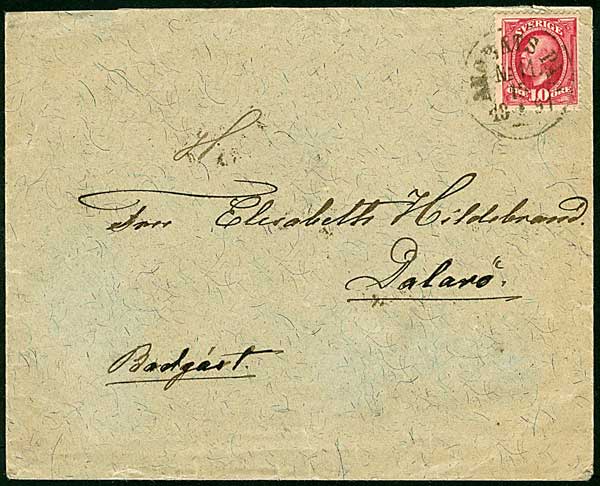 SVERIGE
ÖRE 10 ÖRE
H
Fru Elisabeth Hildebrand.
Dalarö.
Badgäst.